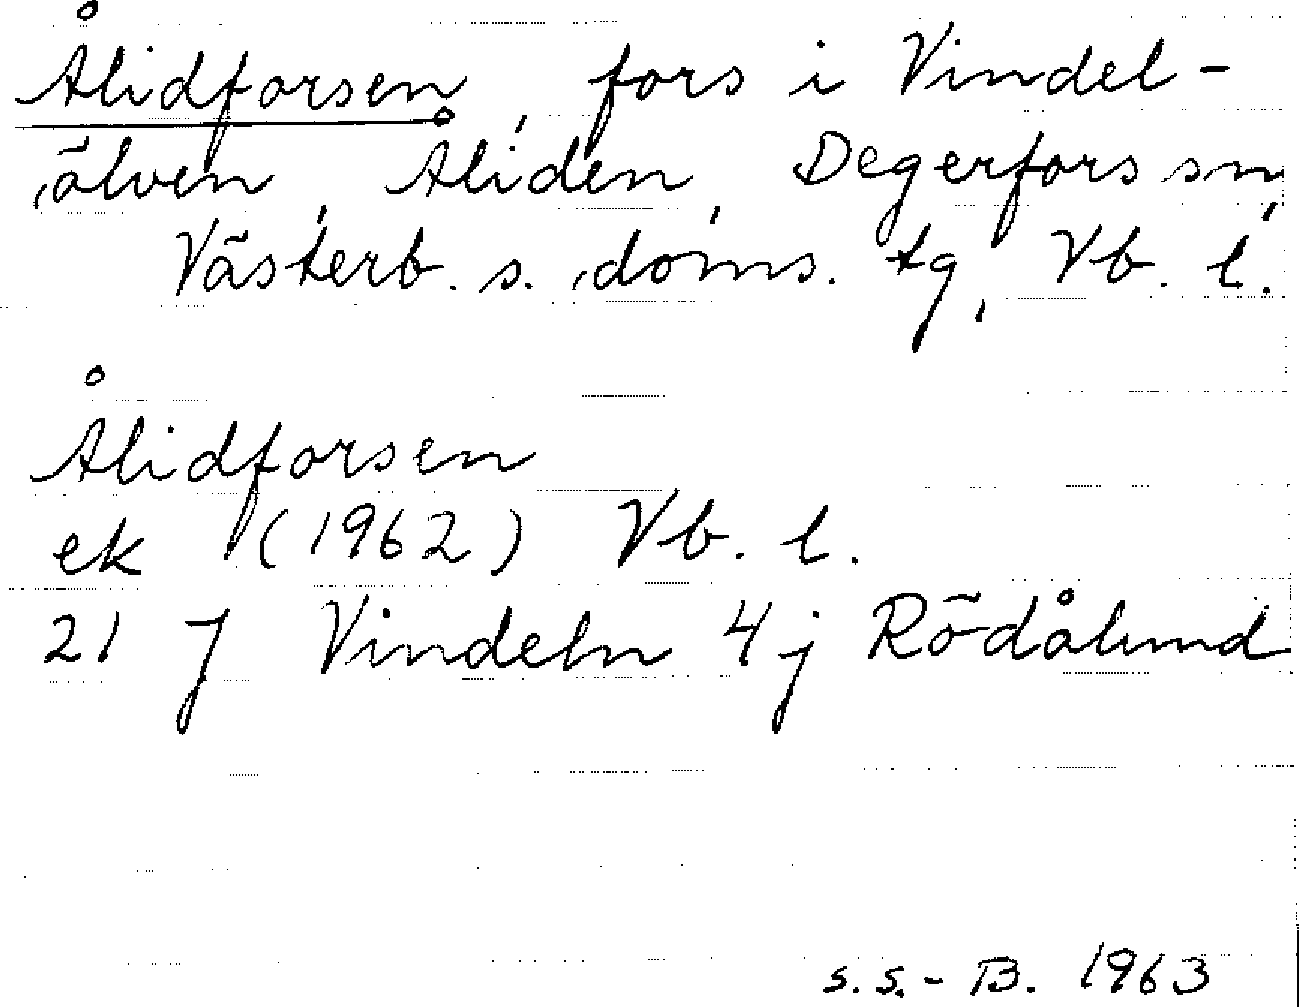 Ålidforsen, fors i Vindel-
älven, Åliden, Degerfors sn,
Västerb. s. doms. tg, Vb. l.
Ålidforsen
ek (1962) Vb. l.
21 J Vindeln 4j Rödålund
s.s.-B. 1963